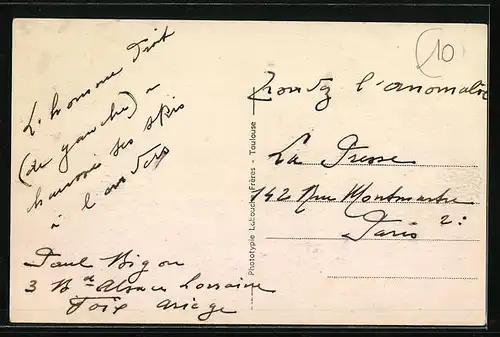 L'homme droit
(de gauche) a
chaussé ses skis
à l'envers
Paul Bigou
3 Bd Alsace Lorraine
Foix Ariège
Phototypie Labouche Frères - Toulouse
10
Trouvez l'anomalie
La Presse
142 Rue Montmartre
Paris 2: